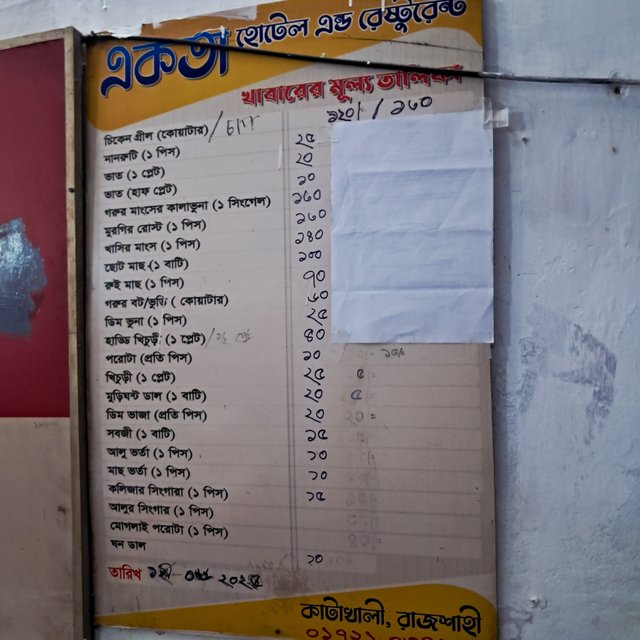 একতা হোটেল এন্ড রেষ্টুরেন্ট
খাবারের মূল্য তালিকা
চিকেন গ্রীল (কোয়াটার) / ১২০/- / ১৬০
নানরুটি (১ পিস) ২৫
ভাত (১ প্লেট) ২০
ভাত (হাফ প্লেট) ১০
গরুর মাংসের কালাভুনা (১ সিংগেল) ১৬০
মুরগির রোস্ট (১ পিস) ১৬০
খাসির মাংস (১ পিস) ১৪০
ছোট মাছ (১ বাটি) ১০০
রুই মাছ (১ পিস) ৭০
গরুর বট/ভুড়ি (কোয়াটার) ৬০
ডিম ভুনা (১ পিস) ২৫
হান্ডি খিচুড়ী (১ প্লেট) ৪০
পরোটা (প্রতি পিস) ১০
খিচুড়ী (১ প্লেট) ২৫
মুড়িঘন্ট ডাল (১ বাটি) ২০
ডিম ভাজা (প্রতি পিস) ২০
সবজী (১ বাটি) ১৫
আলু ভর্তা (১ পিস) ১০
মাছ ভর্তা (১ পিস) ১০
কলিজার সিংগারা (১ পিস) ১৫
আলুর সিংগার (১ পিস)
মোগলাই পরোটা (১ পিস)
ঘন ডাল ১০
তারিখ
কাটাখালী, রাজশাহী